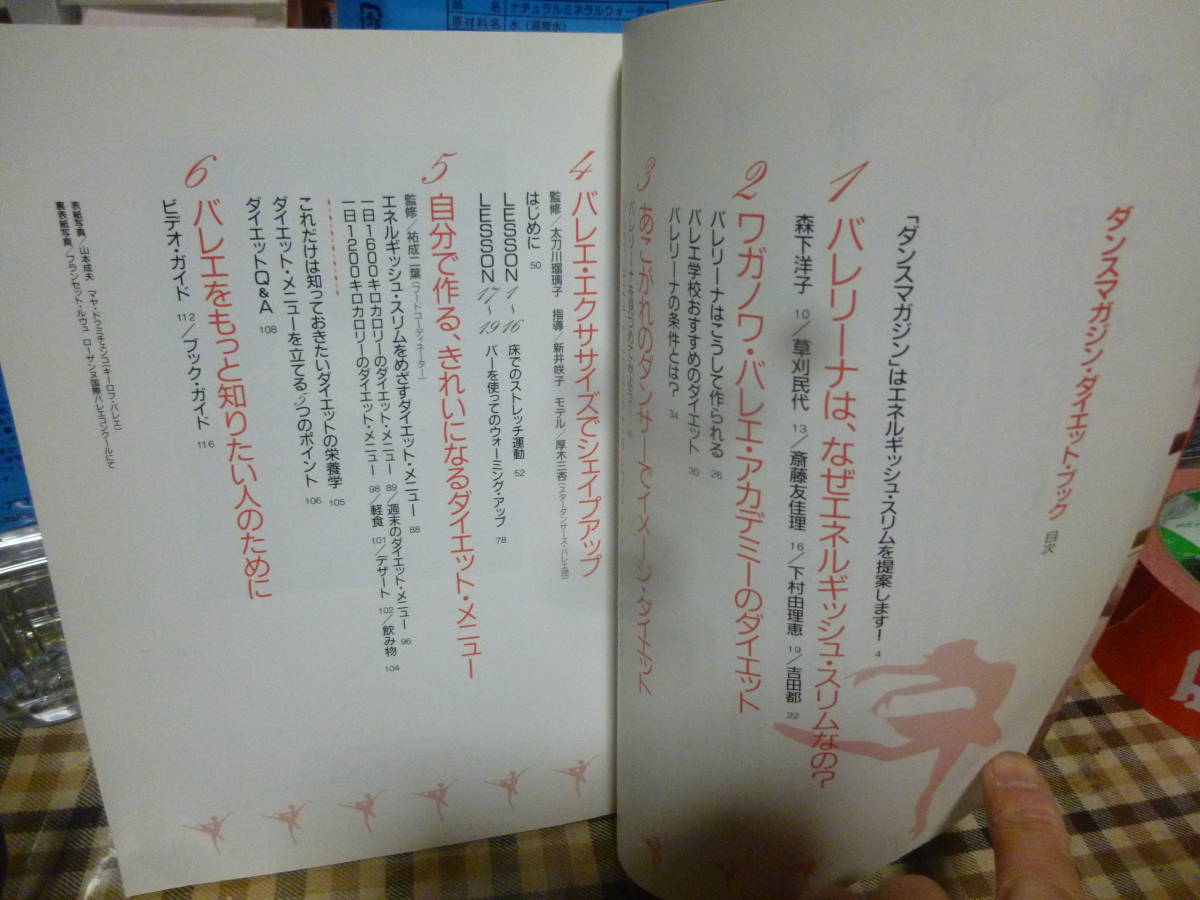 ダンスマガジン・ダイエット・ブック 目次
「ダンスマガジン」はエネルギッシュ・スリムを提案します! 4
1 バレリーナは、なぜエネルギッシュ・スリムなの?
森下洋子 10/草刈民代 13/斎藤友佳理 16/下村由理恵 19/吉田都 22
2 ワガノワ・バレエ・アカデミーのダイエット
バレリーナはこうして作られる 26
バレエ学校おすすめのダイエット 30
バレリーナの条件とは? 34
3 あこがれのダンサーでイメージ・ダイエット
4 バレエ・エクササイズでシェイプアップ
監修/太刀川瑠璃子 指導/新井咲子 モデル/厚木三杏(スターダンサーズ・バレエ団)
はじめに 50
LESSON 1〜16 床でのストレッチ運動 52
LESSON 17〜19 バーを使ってのウォーミング・アップ 78
5 自分で作る、きれいになるダイエット・メニュー
監修/祐成二葉(フードコーディネーター)
エネルギッシュ・スリムをめざすダイエット・メニュー 88
一日1600キロカロリーのダイエット・メニュー 89/週末のダイエット・メニュー 96
一日1200キロカロリーのダイエット・メニュー 98/軽食 101/デザート 102/飲み物 104
これだけは知っておきたいダイエットの栄養学 105
ダイエット・メニューを立てる5つのポイント 106
ダイエットQ&A 108
6 バレエをもっと知りたい人のために
ビデオ・ガイド 112/ブック・ガイド 116
表紙写真/山本成夫 マヤ・ドゥミチェンコ(キーロフ・バレエ)
裏表紙写真/フランセット・ルヴュ ローザンヌ国際バレエコンクールにて
品 名 ナチュラルミネラルウォーター
原材料名 水(温泉水)